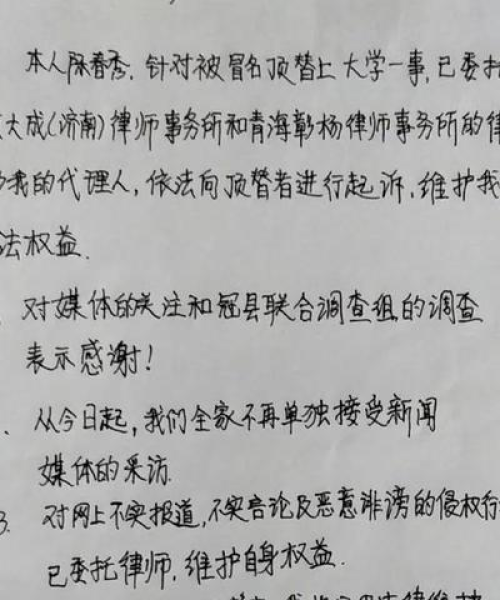 本人陈春秀，针对被冒名顶替上大学一事，已委托
大成(济南)律师事务所和青海彰杨律师事务所的律
为我的代理人，依法向顶替者进行起诉，维护我
法权益．
对媒体的关注和冠县联合调查组的调查
表示感谢！
从今日起，我们全家不再单独接受新闻
媒体的采访．
3. 对网上不实报道，不实言论及恶意诽谤的侵权行
已委托律师，维护自身权益．